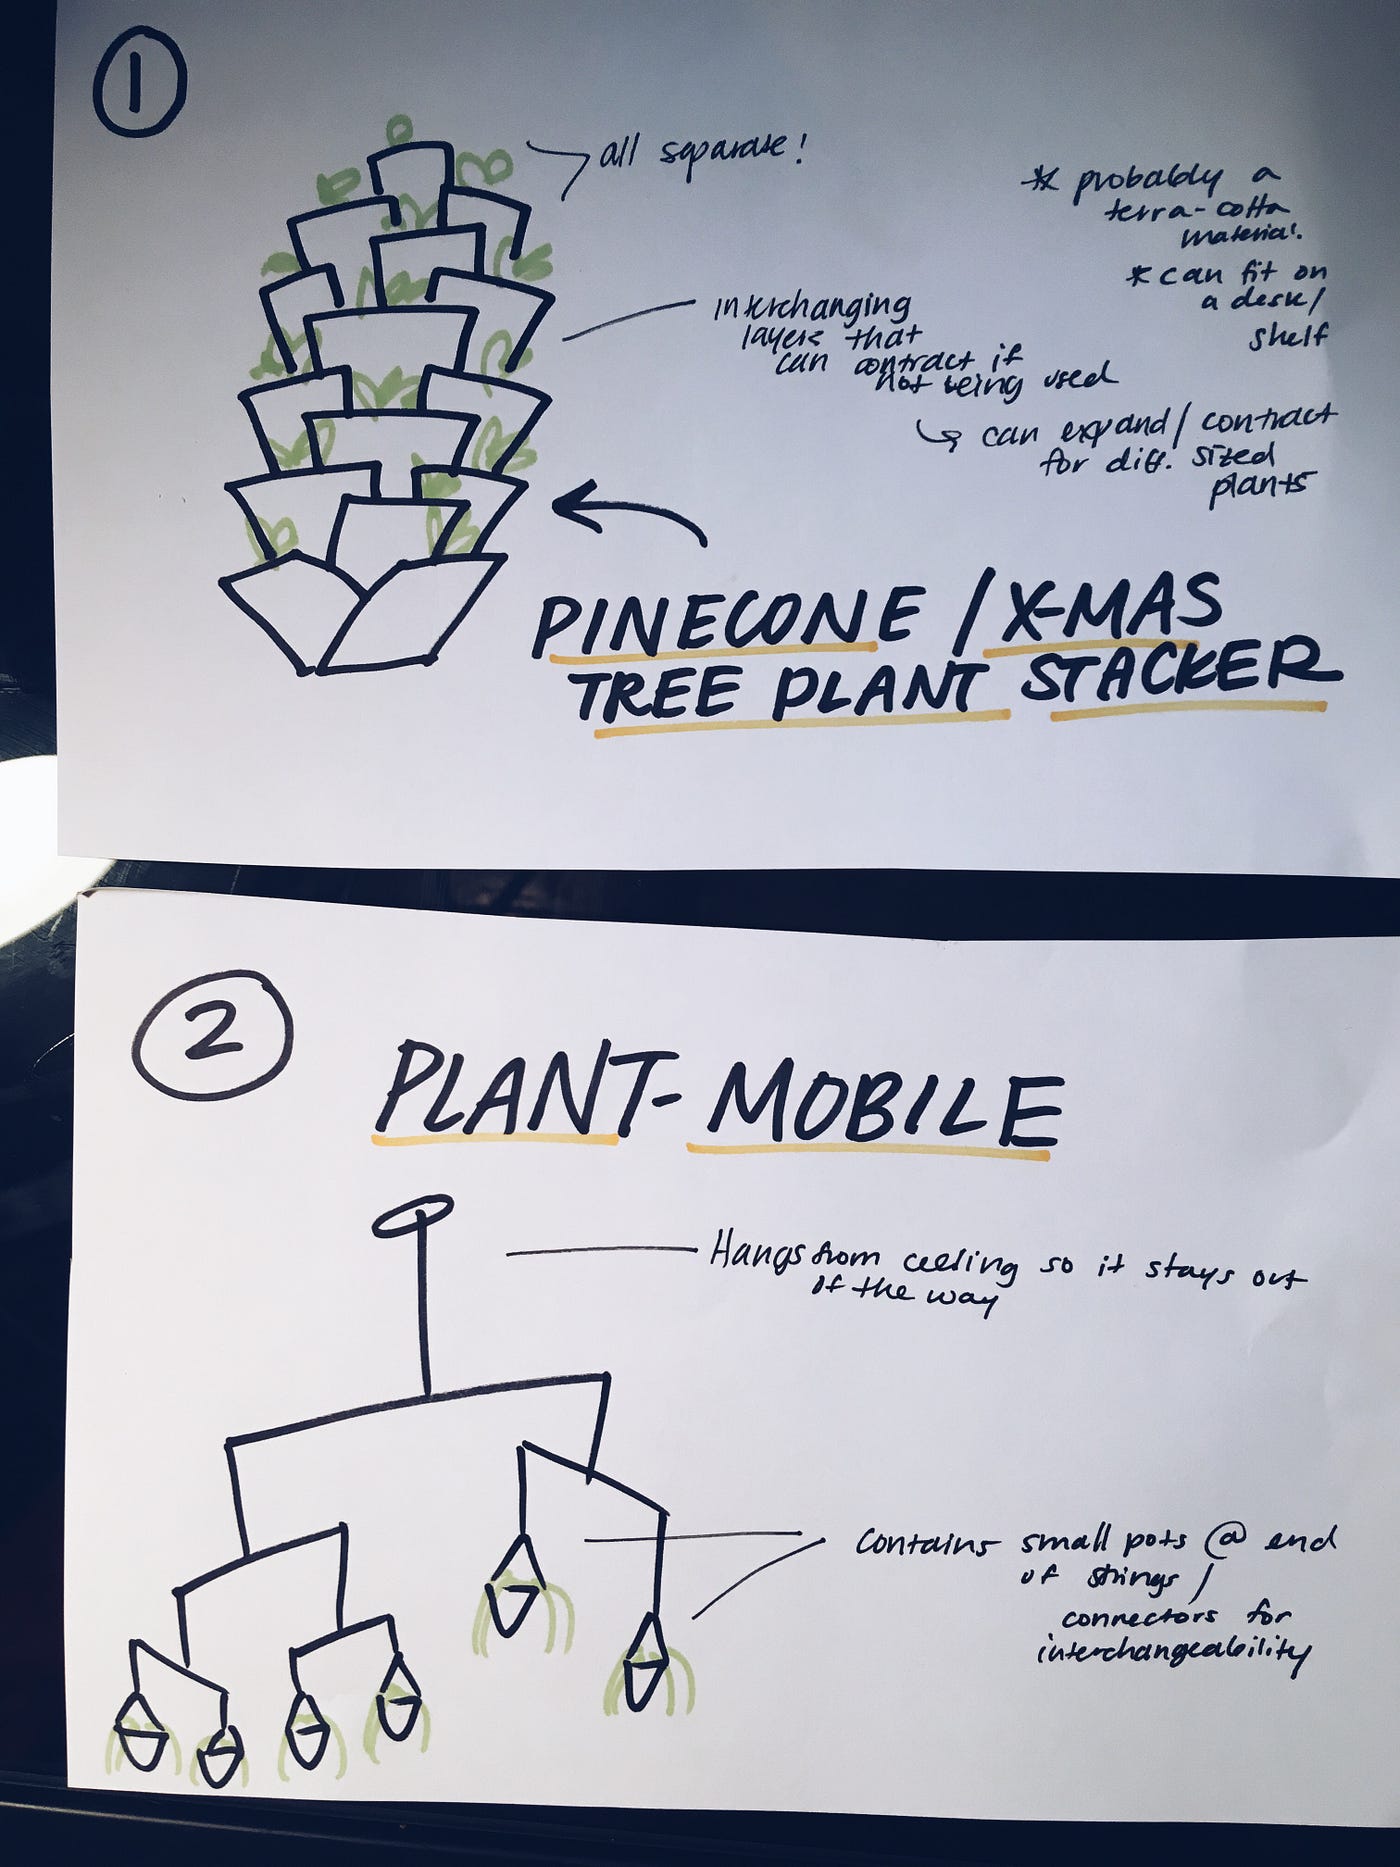 1
all separate!
* probably a
terra-cotta
material.
* can fit on
a desk/
shelf
interchanging
layers that
can contract if
not being used
↳ can expand/contract
for diff. sized
plants
PINECONE / X-MAS
TREE PLANT STACKER
2
PLANT-MOBILE
Hangs from ceeling so it stays out
of the way
Contains small pots @ end
of strings/
connectors for
interchangeability